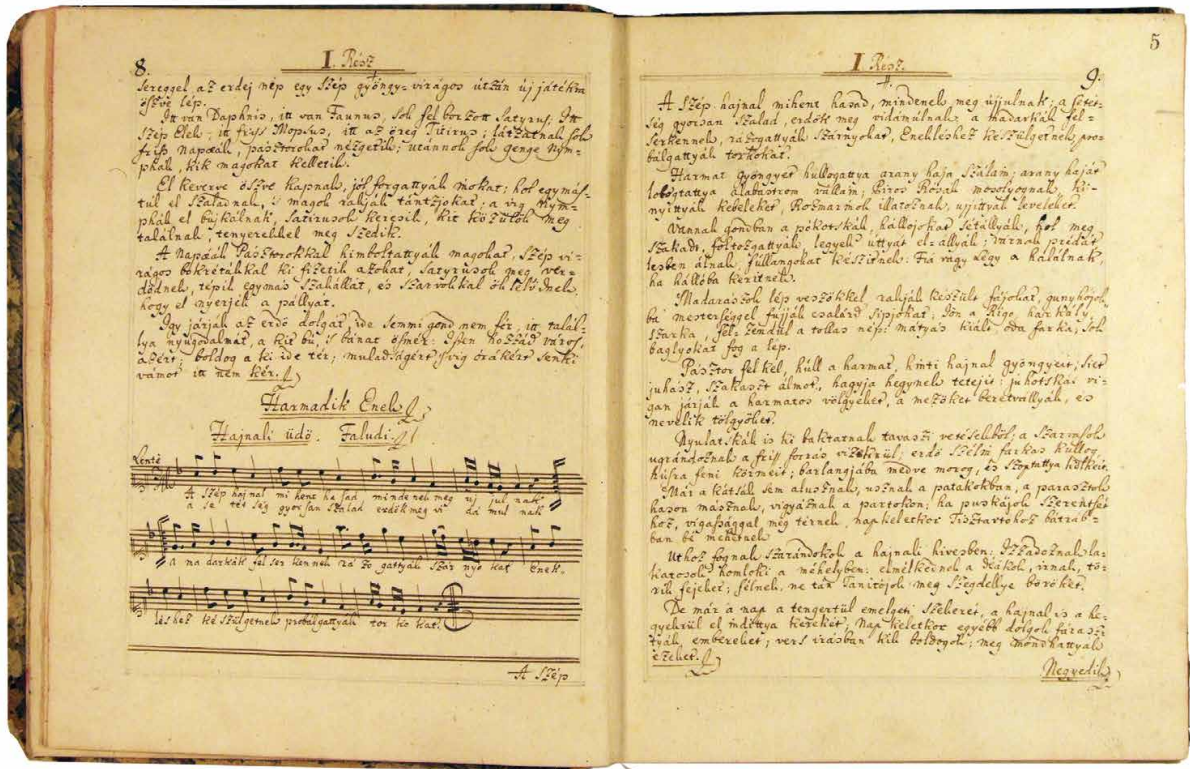 8.
I. Rész
sereggel, az erdej nép egy szép gyöngy-virágos útzán új játékra
öszve lép.
Itt van Daphnis, itt van Faunus, sok fel borzott Satyrus; Itt
szép Elek; itt friss Mopsus, itt az öreg Titirus; játzatnak sok
friss Napææk, pasztorokat nézgetik; utánnok sok genge Nym-
phák, kik magokat kelletik.
El keverve öszve kapnak, jól forgattyák inokat; hol egymás-
túl el szaladnak, 's magok rakják tántzjokat; a vig Nym-
phák el bújkálnak, Satirusok keresik, kit közülök meg
találnak, tenyerekkel meg szedik.
A Napææk Pásztorokkal himboltattyák magokat, szép vi-
rágos bokrétákkal ki fizetik azokat, Satyrusok meg ver-
dődnek, tépik egymás szakállát, és szarvokkal ök
hogy el nyerjék a pállyát.
Igy járják az erdö dolgát, ide semmi gond nem fér, itt talál-
lya nyugodalmát, a kit bú, 's bánat ösmer: Isten hozzád város,
azért; boldog a ki ide tér; muladságért, 's vig órákért senki
vámot itt nem kér.
Harmadik Enek
Hajnali üdö. Faludi.
Lentè
A szép hajnal mi hent ha sad mindenek meg uj jul nak
a se tét ség gyorsan szalad erdök meg vi dá mul nak
a ma darkák fel ser kennek rá zo gattyák szár nyo kat Enek-
léshez ké szülgetnek probálgattyák tor ko kat.
A szép
5
I. Rész.
9.
A szép hajnal mihent hasad, mindenek meg újjulnak; a setét-
ség gyorsan szalad, erdök meg vidámúlnak. a madarkák fel-
serkennek, rázogattyák szárnyokat, Enekléshez készülgetnek, pro-
bálgattyák torkokat.
Harmat gyöngyét hullogattya arany haja szálain; arany haját
lobogtattya alabastrom vállain; Piros Rósák mosolyognak, ki-
nyittyák kebeleket, Rozmarinok illatoznak, ujjittyák leveleket.
Vannak gondban a pókotskák, hállojokat sétállyák; hol meg
szakadt, foltozgattyák, legyek uttyát el-állyák; várnak prédát
lesben álnak, fullángokat készítnek: Fiá vagy Légy a halálnak,
ha hállóba kerítnek.
Madarászok lép veszökkel, rakják készült fájokat, gunyhójok-
bá mesterséggel fújják csalárd sipjokat; Jön a Rigo, harkály,
szarka, fel-zendúl a tollas nép: mátyás király oda farka, sok
baglyokat fog a lép.
Pásztor fel kél, húll a harmat, hinti hajnal gyöngyeit; siet
juhász, szakaszt álmot, hagyja hegynek tetejit: juhotskái vi-
gan járják a harmatos völgyeket, a mezöket béretvállyák, és
nevelik tölgyöket.
Nyulatskák is ki baktatnak tavaszi vetésekböl; a szarvasok
ugrándoznak a friss forrás vizekrül; erdö szélin farkas kullog,
húsra feni körmeit; barlangjába medve morog, és kölkeit.
Már a kátsák sem alusznak, usznak a patakokban, a parasztok
hason masznak, vigyáznak a partokon; ha puskájok szerentsét
hoz, vigassággal meg térnek, nap keletkor Tisztartohoz bátrab-
ban bé mehetnek.
Uthoz fognak szarándokok a hajnali hivesben: Izzadoznak la-
katosok homloki a méhelyben: elmélkednek a Deákok, irnak, tö-
rik fejeket; félnek, ne tán Tanitójok meg szegdellye böröket.
De már a nap a tengertül emelgeti szekerét, a hajnal is a he-
gyekrül el indittya kerekét; Nap keletkor egyébb dolgok fáraszt-
tyák embereket; vers irásban kik boldogok; meg mondhattyák
ezeket.
Negyedik